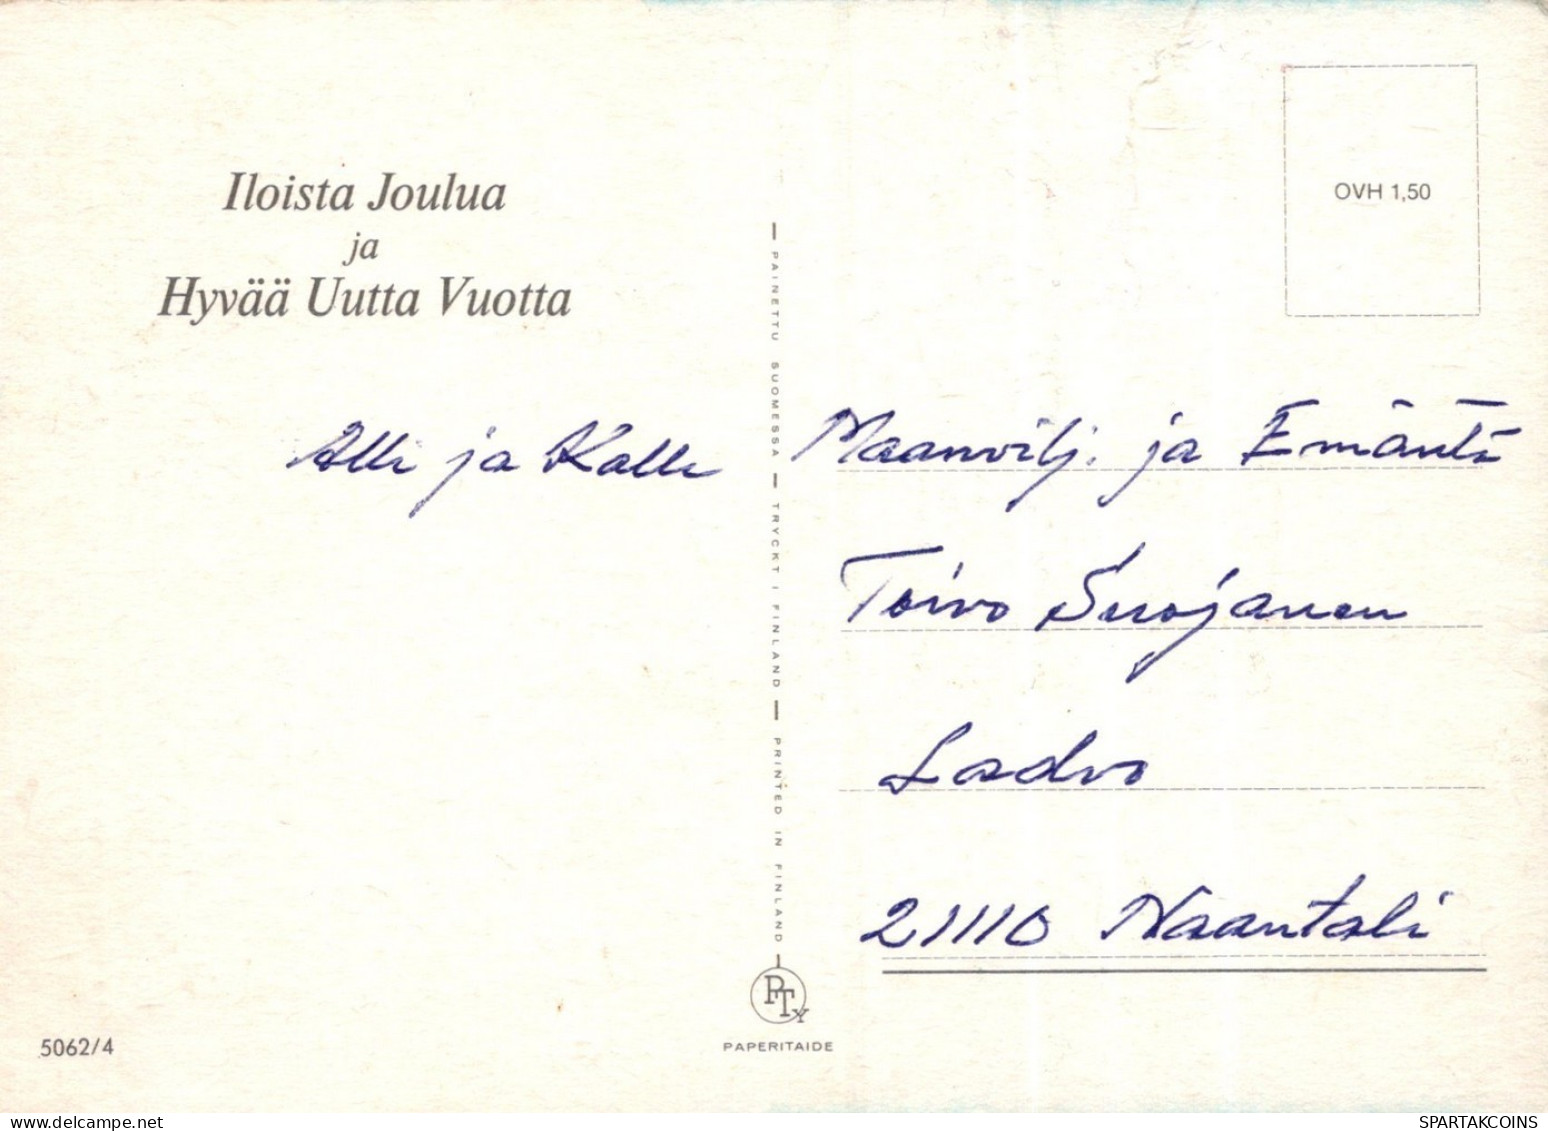 Iloista Joulua
ja
Hyvää Uutta Vuotta
Alli ja Kalle
OVH 1,50
Maanvilj. ja Emäntä
Toivo Suojanen
Ladvo
21110 Naantali
PAINETTU SUOMESSA — TRYCKT I FINLAND — PRINTED IN FINLAND
PTY
PAPERITAIDE
5062/4
SPARTAKCOINS